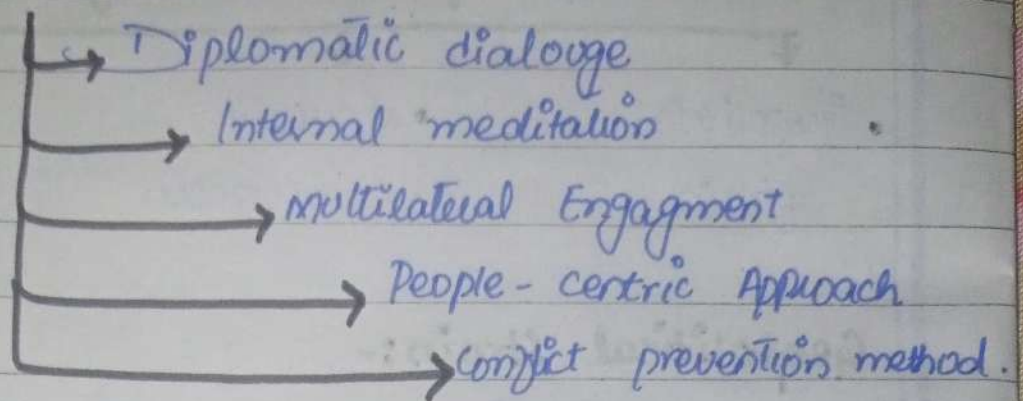 Diplomatic dialouge
Internal meditation
Multilateral Engagment
People - centric Approach
Conflict prevention method.